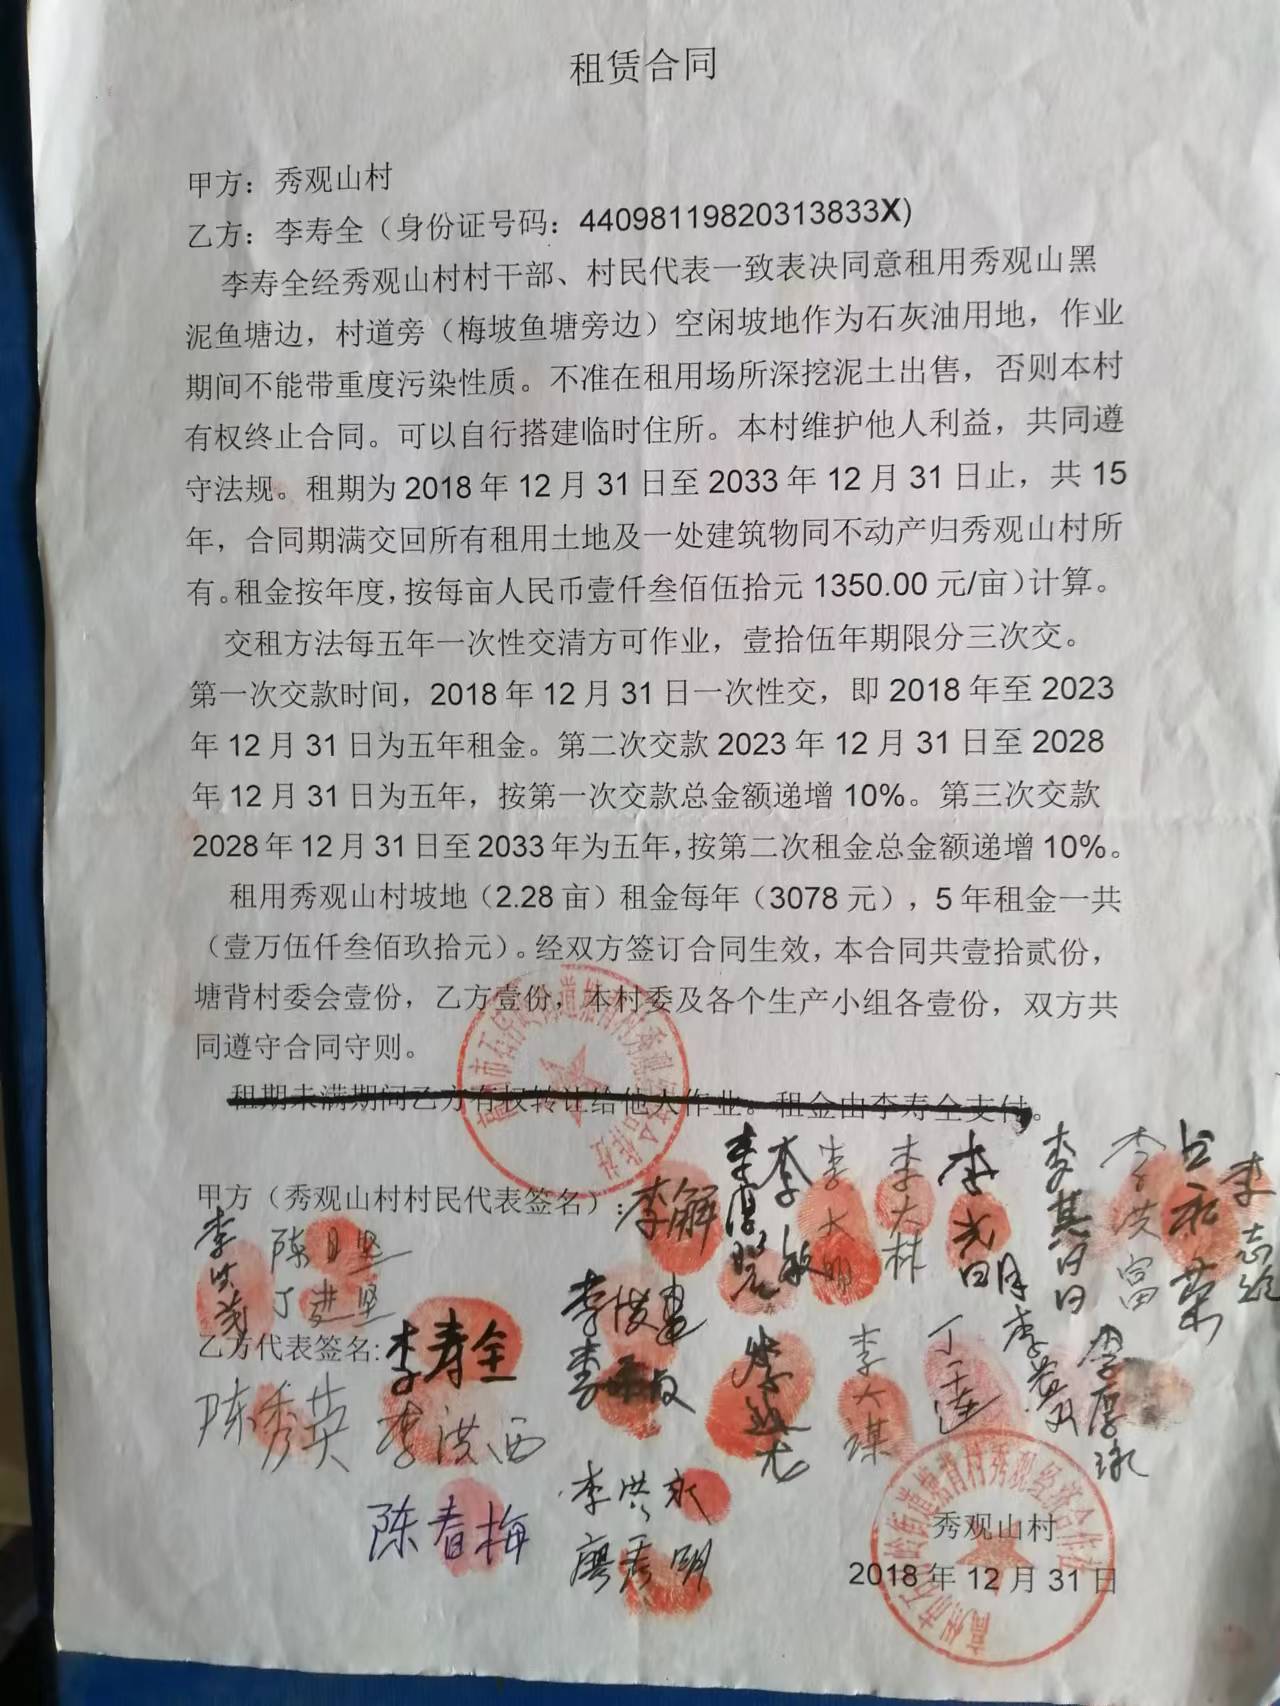 租赁合同
甲方：秀观山村
乙方：李寿全（身份证号码：44098119820313833X)
李寿全经秀观山村村干部、村民代表一致表决同意租用秀观山黑
泥鱼塘边，村道旁（梅坡鱼塘旁边）空闲坡地作为石灰油用地，作业
期间不能带重度污染性质。不准在租用场所深挖泥土出售，否则本村
有权终止合同。可以自行搭建临时住所。本村维护他人利益，共同遵
守法规。租期为 2018 年 12 月 31 日至 2033 年 12 月 31 日止，共 15
年，合同期满交回所有租用土地及一处建筑物同不动产归秀观山村所
有。租金按年度，按每亩人民币壹仟叁佰伍拾元 1350.00 元/亩）计算。
交租方法每五年一次性交清方可作业，壹拾伍年期限分三次交。
第一次交款时间，2018 年 12 月 31 日一次性交，即 2018 年至 2023
年 12 月 31 日为五年租金。第二次交款 2023 年 12 月 31 日至 2028
年 12 月 31 日为五年，按第一次交款总金额递增 10%。第三次交款
2028 年 12 月 31 日至 2033 年为五年，按第二次租金总金额递增 10%。
租用秀观山村坡地（2.28 亩）租金每年（3078 元），5 年租金一共
（壹万伍仟叁佰玖拾元）。经双方签订合同生效，本合同共壹拾贰份，
塘背村委会壹份，乙方壹份，本村委及各个生产小组各壹份，双方共
同遵守合同守则。
租期未满期间乙方有权转让给他人作业。租金由李寿全支付。
甲方（秀观山村村民代表签名）：李解 李厚 李敏 李大明 李大林 李光明 李其 李洪富 李志
李洪茂 陈日坚
丁进坚
李俊建
乙方代表签名：李寿全
李大谋 丁 李厚
陈秀英 李洪西
李洪永
陈春梅
廖秀明
秀观山村
2018 年 12 月 31 日